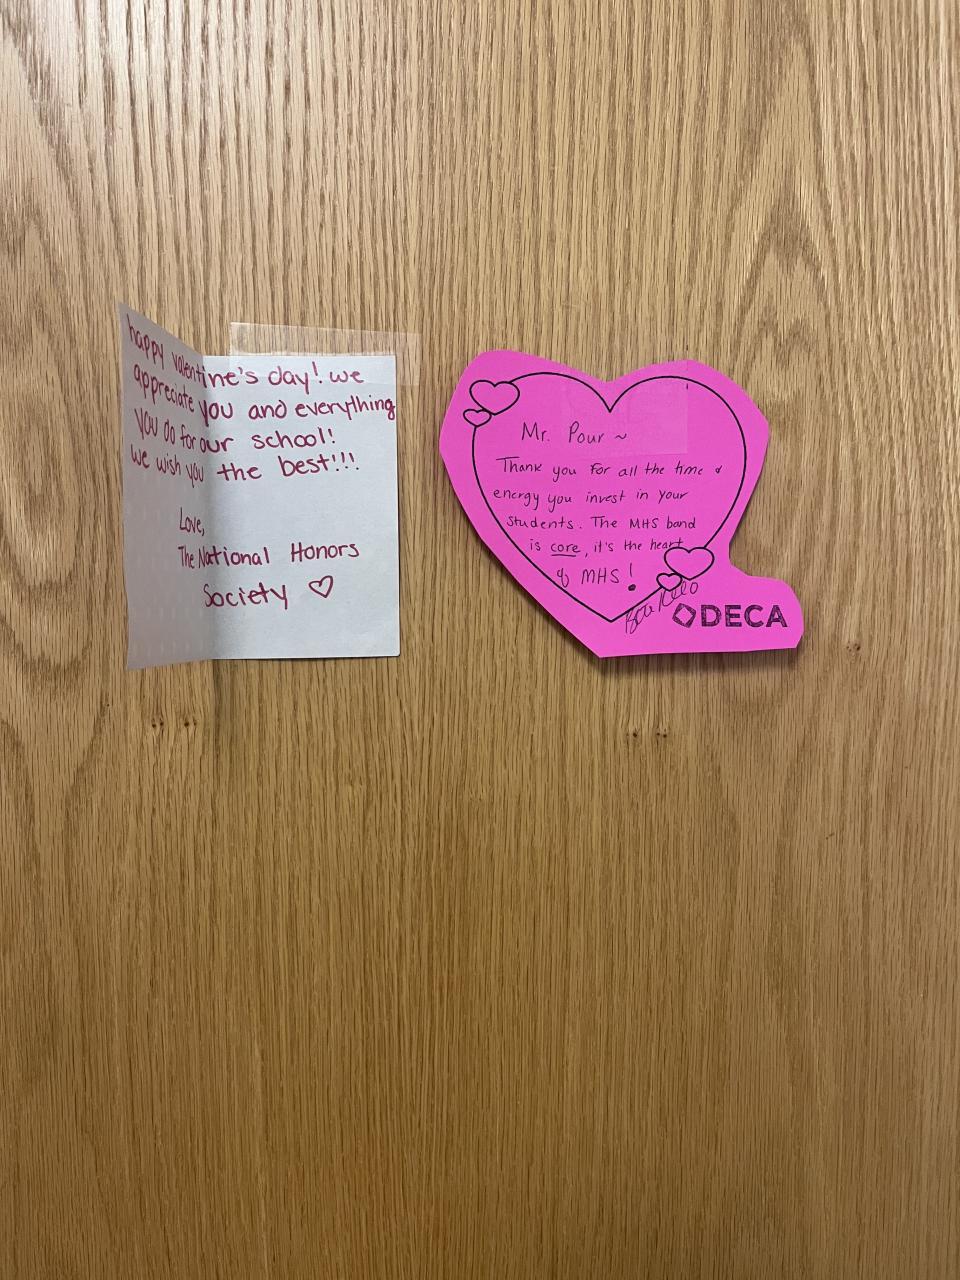 happy valentine's day! we
appreciate you and everything
you do for our school!
we wish you the best!!!
Love,
The National Honors
Society ♡
Mr. Pour ~
Thank you for all the time &
energy you invest in your
students. The MHS band
is core, it's the heart
of MHS!
DECA